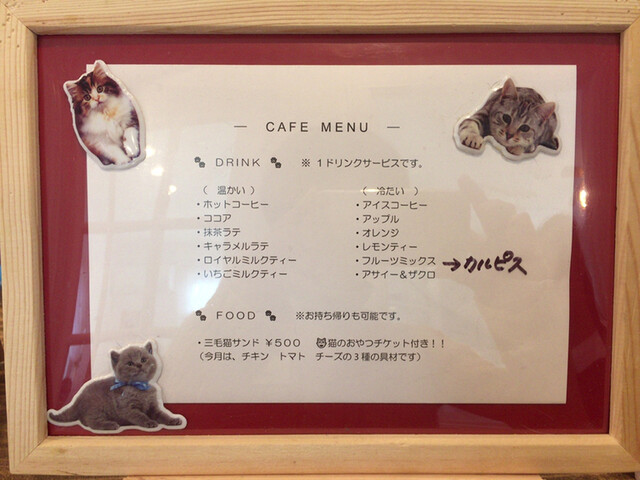 — CAFE MENU —
DRINK ※ 1ドリンクサービスです。
( 温かい )
・ホットコーヒー
・ココア
・抹茶ラテ
・キャラメルラテ
・ロイヤルミルクティー
・いちごミルクティー
( 冷たい )
・アイスコーヒー
・アップル
・オレンジ
・レモンティー
・フルーツミックス →カルピス
・アサイー&ザクロ
FOOD ※お持ち帰りも可能です。
・三毛猫サンド ¥500 🐱猫のおやつチケット付き!!
(今月は、チキン トマト チーズの3種の具材です)